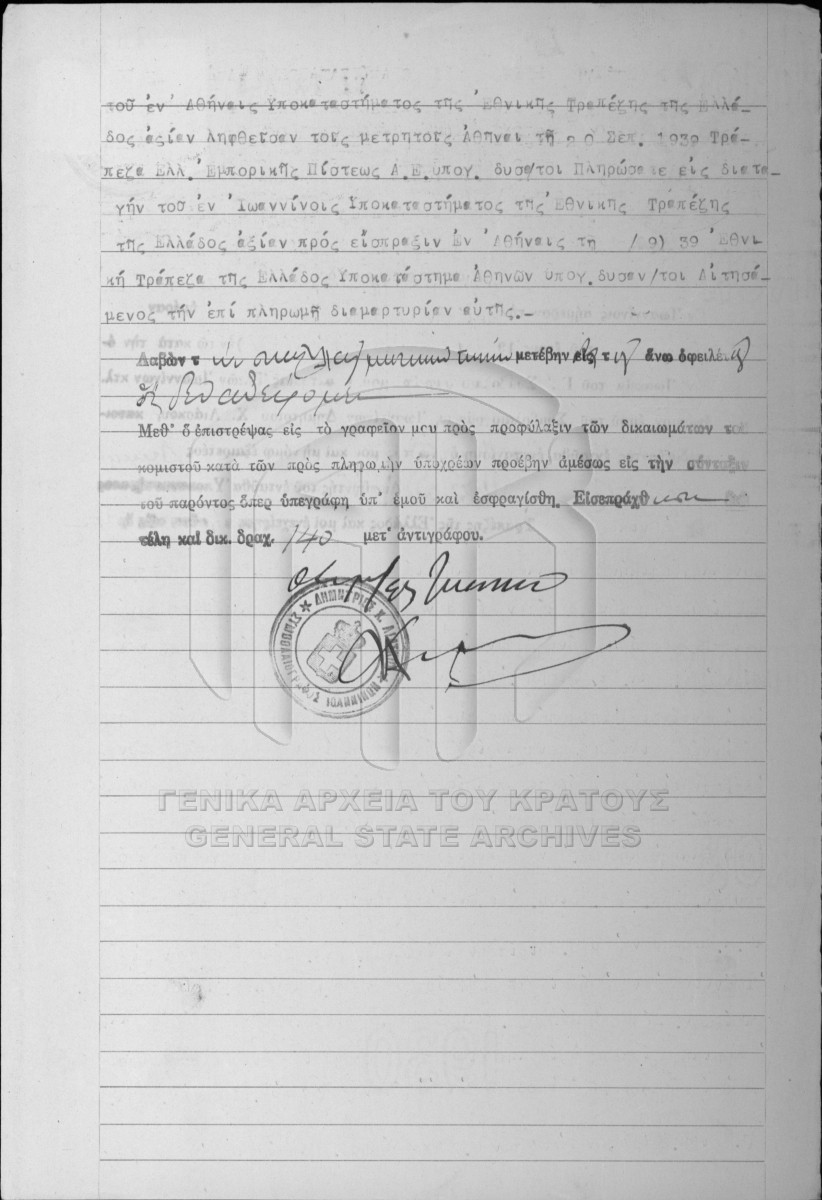 τοῦ ἐν Ἀθήναις Ὑποκαταστήματος τῆς Ἐθνικῆς Τραπέζης τῆς Ἑλλά-
δος ἀξίαν ληφθεῖσαν τοῖς μετρητοῖς Ἀθῆναι τῇ 20 Σεπ. 1939 Τρά-
πεζα Ἑλλ. Ἐμπορικῆς Πίστεως Α.Ε. ὑπογ. δυσα/τοι Πληρώσατε εἰς διατα-
γήν τοῦ ἐν Ἰωαννίνοις Ὑποκαταστήματος τῆς Ἐθνικῆς Τραπέζης
τῆς Ἑλλάδος ἀξίαν πρός εἴσπραξιν Ἐν Ἀθήναις τῇ /9) 39 Ἐθνι
κή Τράπεζα τῆς Ἑλλάδος Ὑποκατάστημα Ἀθηνῶν ὑπογ. δυσαν/τοι Αἰτησά-
μενος τήν ἐπί πληρωμῇ διαμαρτυρίαν αὐτῆς.-
Λαβὼν τ μετέβην εἰς τ ἄνω ὀφειλέ
Μεθ' ὃ ἐπιστρέψας εἰς τὸ γραφεῖον μου πρὸς προφύλαξιν τῶν δικαιωμάτων τοῦ
κομιστοῦ κατὰ τῶν πρὸς πληρωμὴν ὑποχρέων προέβην ἀμέσως εἰς τὴν σύνταξιν
τοῦ παρόντος ὅπερ ὑπεγράφη ὑπ' ἐμοῦ καὶ ἐσφραγίσθη. Εἰσεπράχθησαν
τέλη καὶ δικ. δραχ. 140 μετ' ἀντιγράφου.
ΔΗΜΗΤΡΙΟΣ Κ.
ΣΥΜΒΟΛΑΙΟΓΡΑΦΟΣ ΙΩΑΝΝΙΝΩΝ
ΓΕΝΙΚΑ ΑΡΧΕΙΑ ΤΟΥ ΚΡΑΤΟΥΣ
GENERAL STATE ARCHIVES